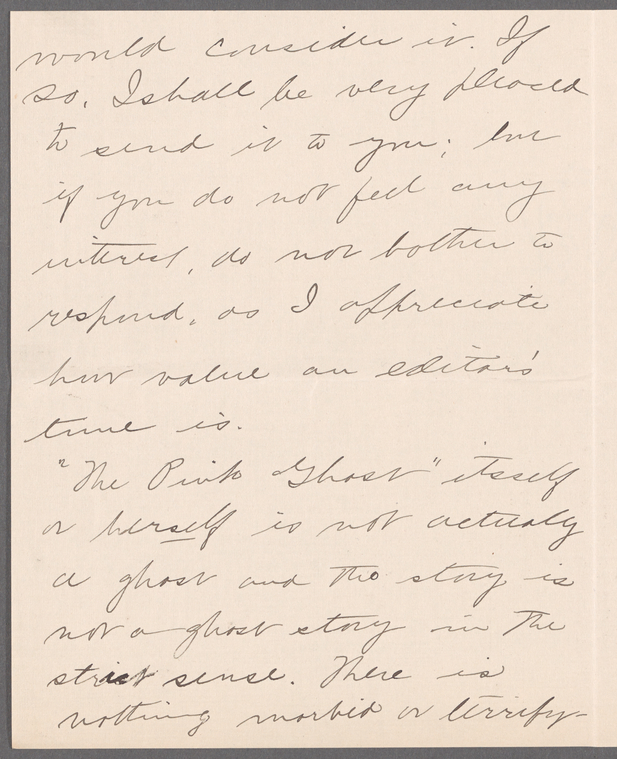 would consider it. If
so, I shall be very pleased
to send it to you; but
if you do not feel any
interest, do not bother to
respond, as I appreciate
how value an editor's
time is.
"The Pink Ghost" itsself
or herself is not actualy
a ghost and the story is
not a ghost story in the
strict sense. There is
nothing morbid or terrify-